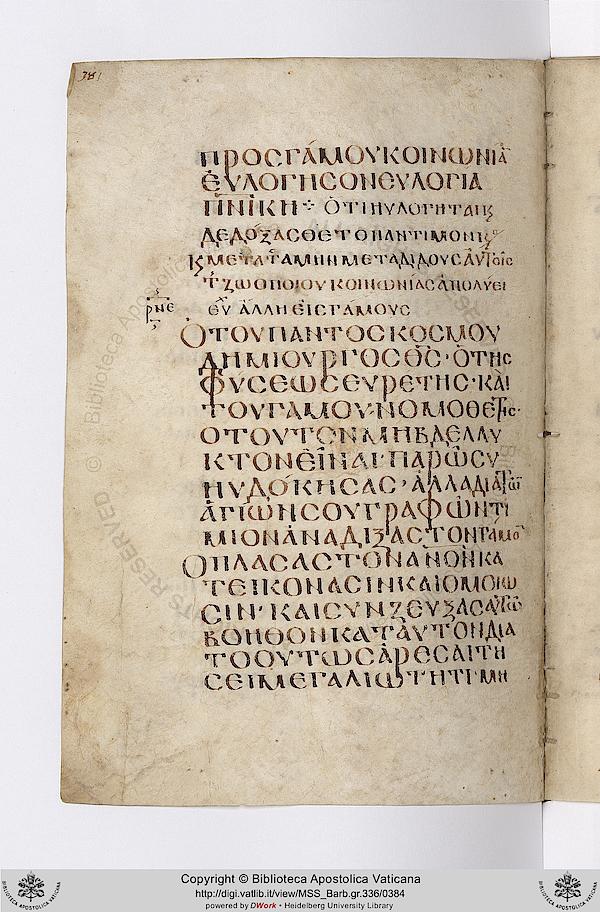 381
ΠΡΟΣ ΓΑΜΟΥ ΚΟΙΝΩΝΙΑ
ΕΥΛΟΓΗΣΟΝ ΕΥΛΟΓΙΑ
ΠΝΙΚΗ ⁘ ΟΤΙ ΗΥΛΟΓΗΤΑΙ
ΔΕΔΟΞΑΣΘΕ ΤΟ ΠΑΝΤΙΜΟΝ
Κ ΜΕΤΑ ΤΑΜΗΝ ΜΕΤΑΔΙΔΟΥΣ ΑΥΤΟΙΣ
Τ ΖΩΟΠΟΙΟΥ ΚΟΙΝΩΝΙΑΣ ΑΠΟΛΥΕΙ
ΡΝΕ
ΕΥ ΑΛΛΗ ΕΙΣ ΓΑΜΟΥΣ
Ὁ ΤΟΥ ΠΑΝΤΟΣ ΚΟΣΜΟΥ
ΔΗΜΙΟΥΡΓΟΣ ΘΣ · Ὁ ΤΗΣ
ΦΥΣΕΩΣ ΕΥΡΕΤΗΣ · ΚΑΙ
ΤΟΥ ΓΑΜΟΥ ΝΟΜΟΘΕΤΗΣ ·
Ο ΤΟΥΤΟΝ ΜΗ ΒΔΕΛΛΥ
ΚΤΟΝ ΕΙΝΑΙ ΠΑΡΩΣΥ
ΗΥΔΟΚΗΣΑΣ · ΑΛΛΑ ΔΙΑ ΤΩ
ΑΓΙΩΝ ΣΟΥ ΓΡΑΦΩΝ ΤΙ
ΜΙΟΝ ΑΝΑΔΙΞΑΣ ΤΟΝ ΓΑΜΟ
Ο ΠΛΑΣΑΣ ΤΟΝ ΑΝΟΝ ΚΑ
Τ ΕΙΚΟΝΑ ΣΙΝ ΚΑΙ ΟΜΟΙΩ
ΣΙΝ · ΚΑΙ ΣΥΝΖΕΥΞΑΣ ΑΥΤΩ
ΒΟΗΘΟΝ ΚΑΤ ΑΥΤΟΝ ΔΙΑ
ΤΟ ΟΥΤΩΣ ΑΡΕΣΑΙ ΤΗ
ΣΕΙ ΜΕΓΑΛΙΩΤΗΤΙ · ΜΗ
© Biblioteca Apostolica Vaticana
RIGHTS RESERVED
Copyright © Biblioteca Apostolica Vaticana
http://digi.vatlib.it/view/MSS_Barb.gr.336/0384
powered by DWork • Heidelberg University Library